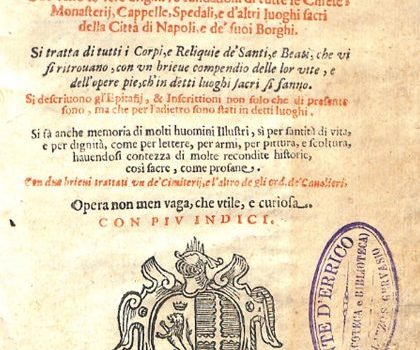 fondationi di tutte le Chiese,
Monasterij, Cappelle, Spedali, e d'altri luoghi sacri
della Città di Napoli, e de' suoi Borghi.
Si tratta di tutti i Corpi, e Reliquie de' Santi, e Beati, che vi
si ritrouano, con vn brieue compendio delle lor vite, e
dell'opere pie, ch'in detti luoghi sacri si fanno.
Si descriuono gl'Epitafij, & Inscrittioni non solo che di presente
sono, ma che per l'adietro sono stati in detti luoghi.
Si fà anche memoria di molti huomini Illustri, sì per santità di vita,
e per dignità, come per lettere, per armi, per pittura, e scoltura,
hauendosi contezza di molte recondite historie,
così sacre, come profane.
Con dua brieui trattati vn de' Cimiterij, e l'altro de gli ord. de' Caualieri.
Opera non men vaga, che vtile, e curiosa.
CON PIV INDICI.
TE D'ERRICO
OTECA E BIBLIOTECA
PALAZZO S. GERVASIO